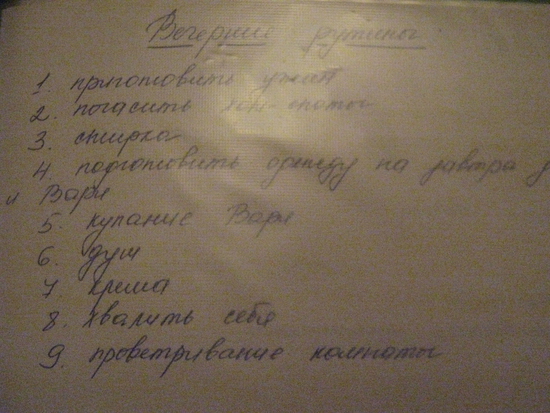 Вечерние рутины
1. приготовить ужин
2. погасить
3. стирка
4 подготовить одежду на завтра
и Вари
5. купание Вари
6. душ
7. крема
8. хвалить себя
9. проветривание комнаты